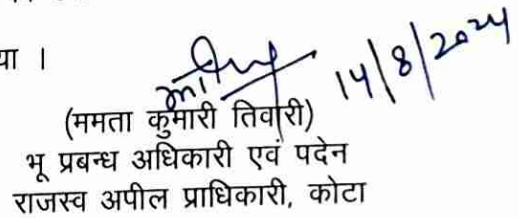 या ।
14/8/2024
(ममता कुमारी तिवारी)
भू प्रबन्ध अधिकारी एवं पदेन
राजस्व अपील प्राधिकारी, कोटा